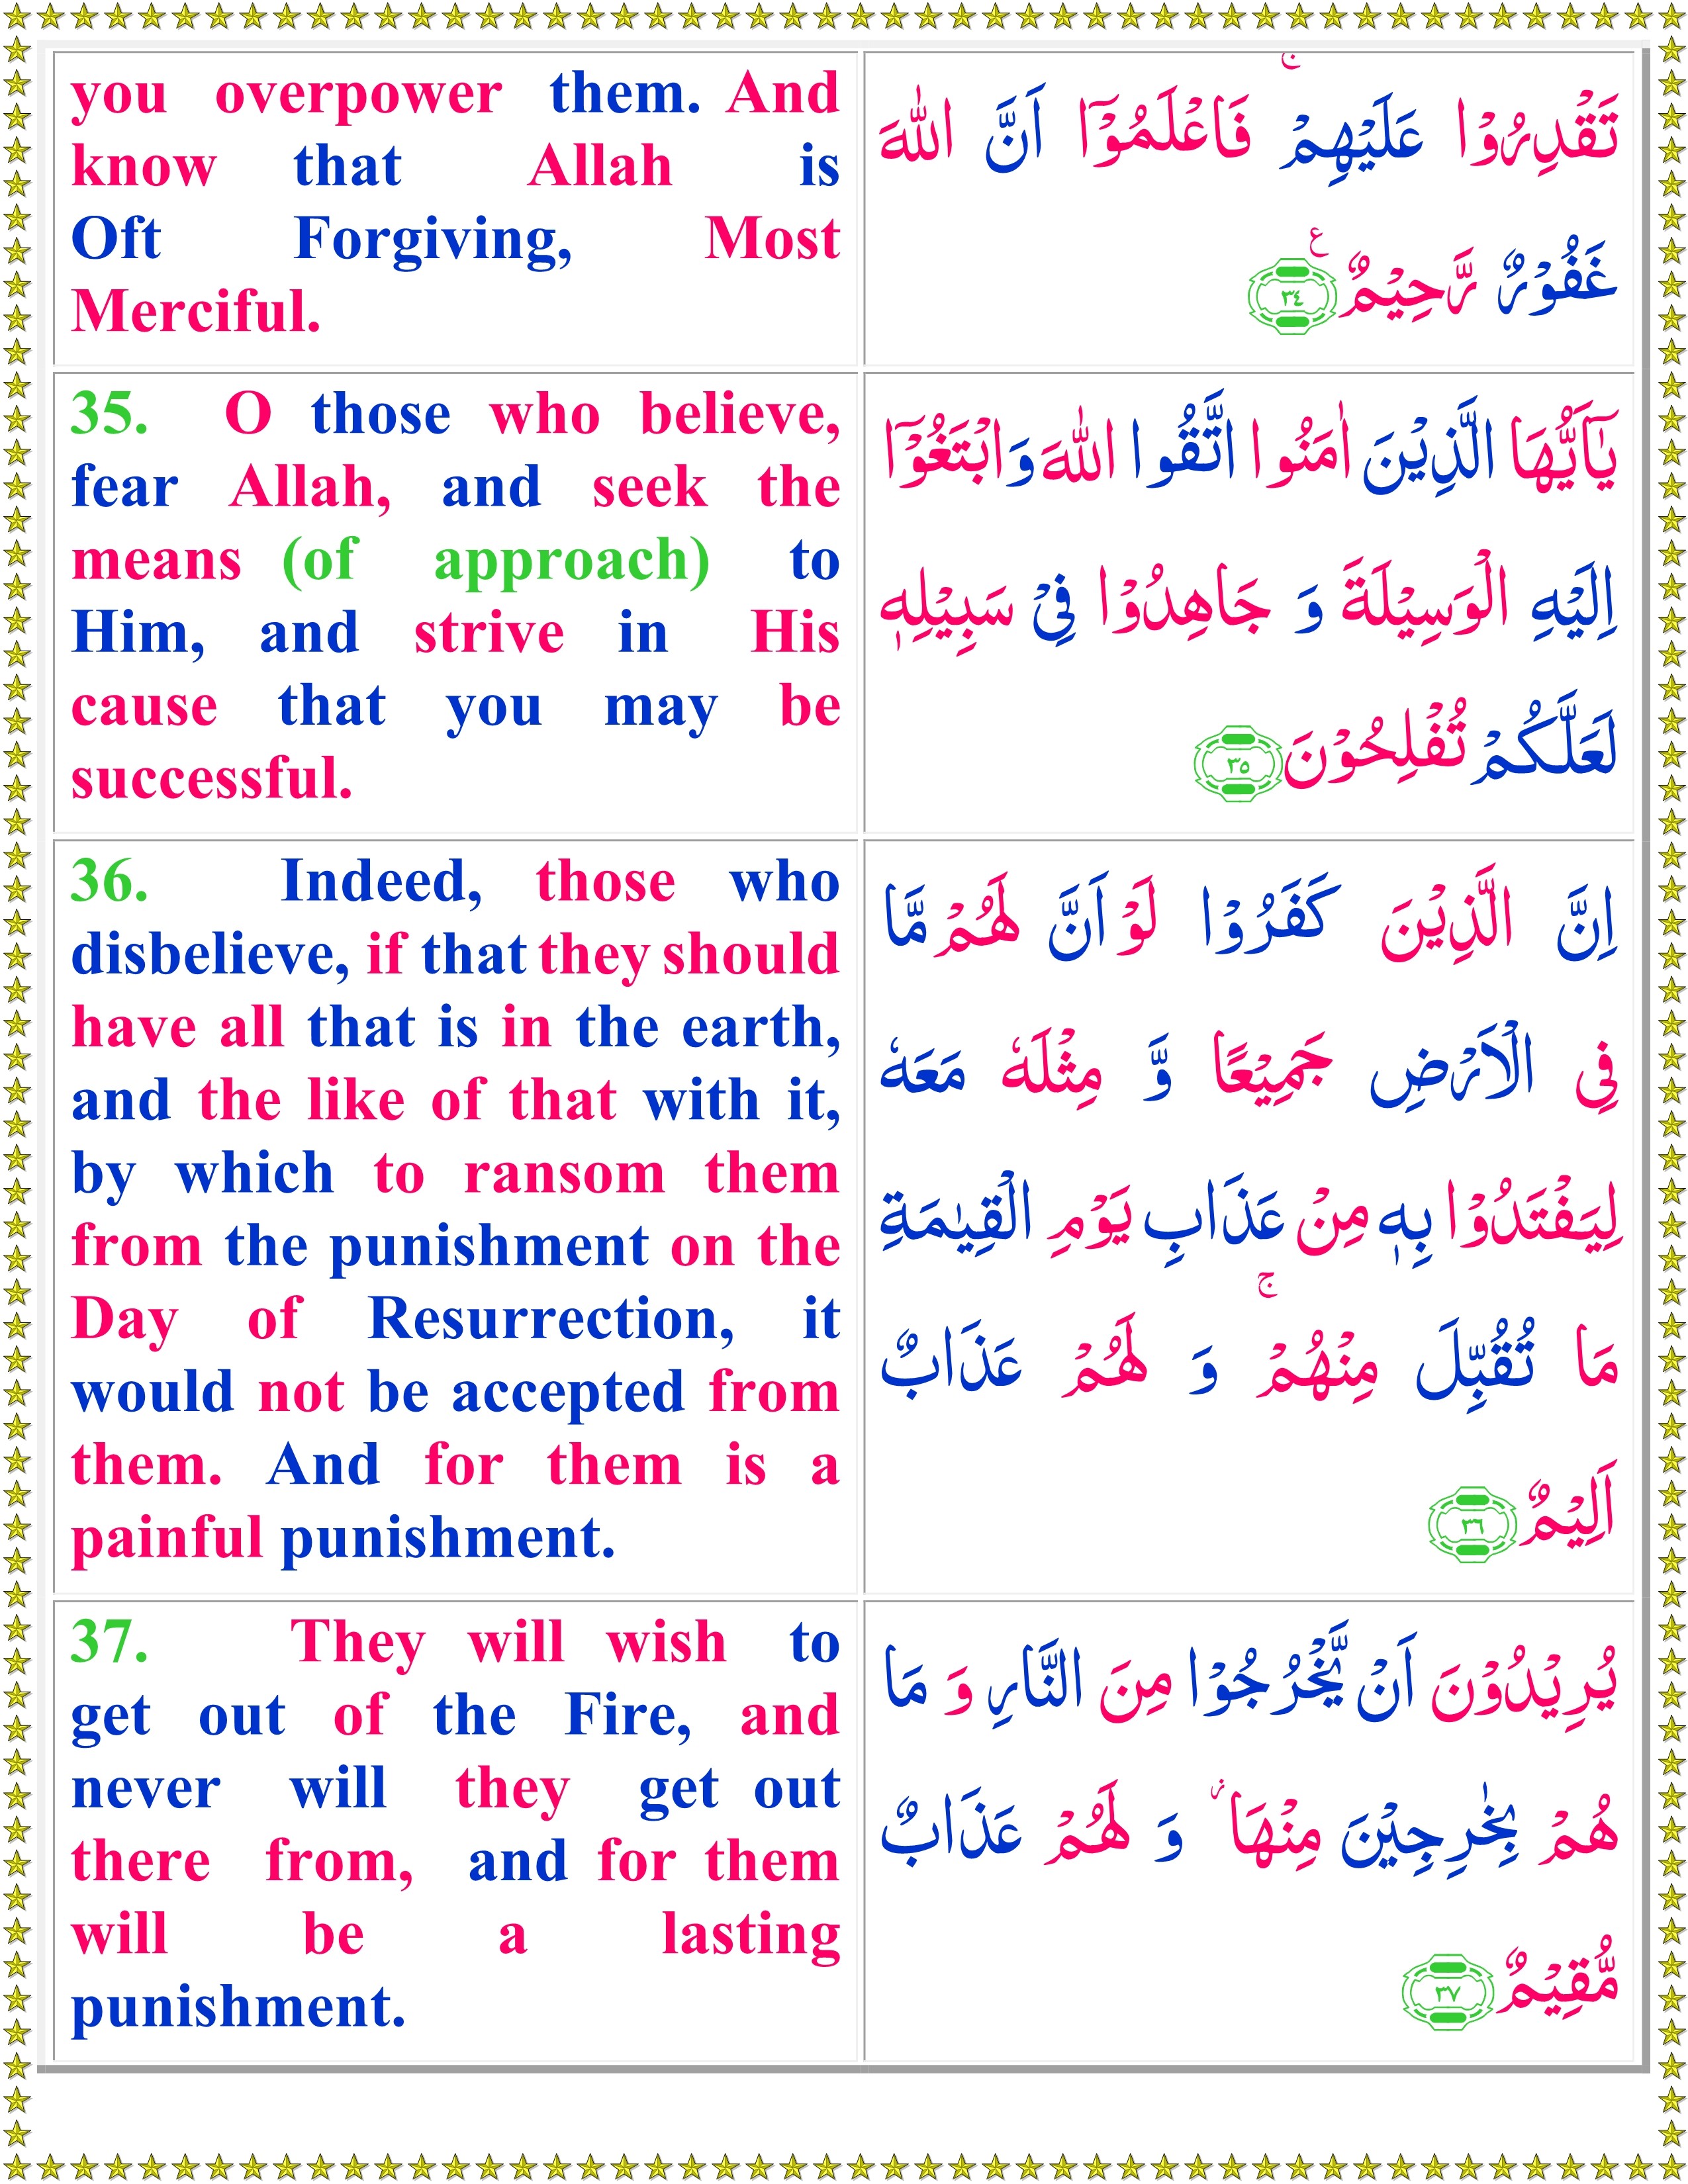 you overpower them. And
know that Allah is
Oft Forgiving, Most
Merciful.
تَقْدِرُوْا عَلَيْهِمْ ۚ فَاعْلَمُوْۤا اَنَّ اللّٰهَ
غَفُوْرٌ رَّحِيْمٌ ࣖ ٣٤
35. O those who believe,
fear Allah, and seek the
means (of approach) to
Him, and strive in His
cause that you may be
successful.
يٰۤاَيُّهَا الَّذِيْنَ اٰمَنُوا اتَّقُوا اللّٰهَ وَابْتَغُوْۤا
اِلَيْهِ الْوَسِيْلَةَ وَ جَاهِدُوْا فِيْ سَبِيْلِهٖ
لَعَلَّكُمْ تُفْلِحُوْنَ ٣٥
36. Indeed, those who
disbelieve, if that they should
have all that is in the earth,
and the like of that with it,
by which to ransom them
from the punishment on the
Day of Resurrection, it
would not be accepted from
them. And for them is a
painful punishment.
اِنَّ الَّذِيْنَ كَفَرُوْا لَوْ اَنَّ لَهُمْ مَّا
فِي الْاَرْضِ جَمِيْعًا وَّ مِثْلَهٗ مَعَهٗ
لِيَفْتَدُوْا بِهٖ مِنْ عَذَابِ يَوْمِ الْقِيٰمَةِ
مَا تُقُبِّلَ مِنْهُمْ ۚ وَ لَهُمْ عَذَابٌ
اَلِيْمٌ ٣٦
37. They will wish to
get out of the Fire, and
never will they get out
there from, and for them
will be a lasting
punishment.
يُرِيْدُوْنَ اَنْ يَّخْرُجُوْا مِنَ النَّارِ وَ مَا
هُمْ بِخٰرِجِيْنَ مِنْهَا ؗ وَ لَهُمْ عَذَابٌ
مُّقِيْمٌ ٣٧